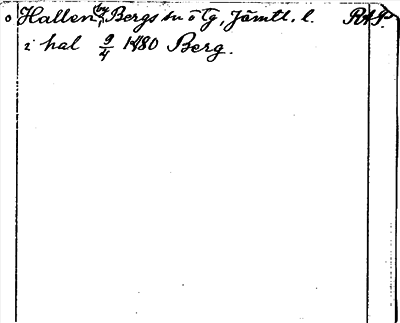 o Hallen, by Bergs sn o tg, Jämtl. l. RAP.
i hal 9/4 1480 Berg.